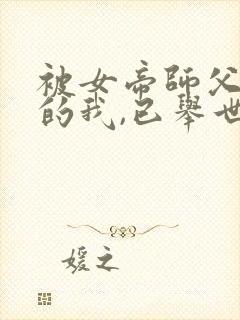 被女帝師父
的我,已舉世
媛之